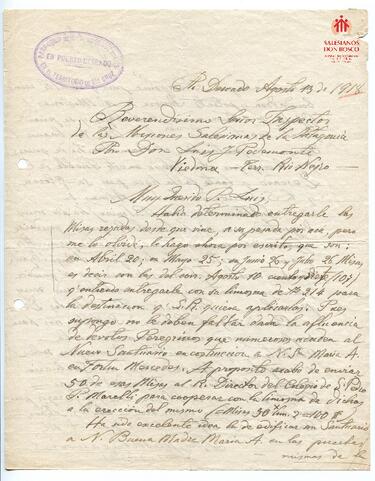 SALESIANOS
DON BOSCO
EN PUERTO DESEADO
Pto Deseado Agosto 13 de 1918
Reverendísimo Señor Inspector
de las Misiones Salesianas de la Patagonia
Pbro Don Luis J. Pedemonte
Viedma - Terr. Rio Negro -
Muy querido P. Luis:
Había determinado entregarle las
Misas rezadas desde que vine, a su pasada por ese, pero
me lo olvidé, lo hago ahora por escrito, que son:
en Abril 20; en Mayo 25; en Junio 26 y Julio 26 Misas
es decir con las del corr. Agosto 10 (107)
y entiendo entregarle con su limosna de $ 214 para
la destinacion q' S.R. quiera aplicarlas. Pues
supongo no le deben faltar dada la afluencia
de devotos Peregrinos que numerosos acuden al
Nuevo Santuario en construccion a N. Sra Maria A.
en Fortin Mercedes. A proposito acabo de enviar
50 de esas Misas al R. Director del Colegio de S. Pedro
P. Marelli para cooperar con la limosna de dichas
a la ereccion del mismo (Misas 50 lim. 2 = 100 $)
Ha sido excelente idea la de edificar un Santuario
a N. Buena Madre Maria A. en las puertas
mismas de la